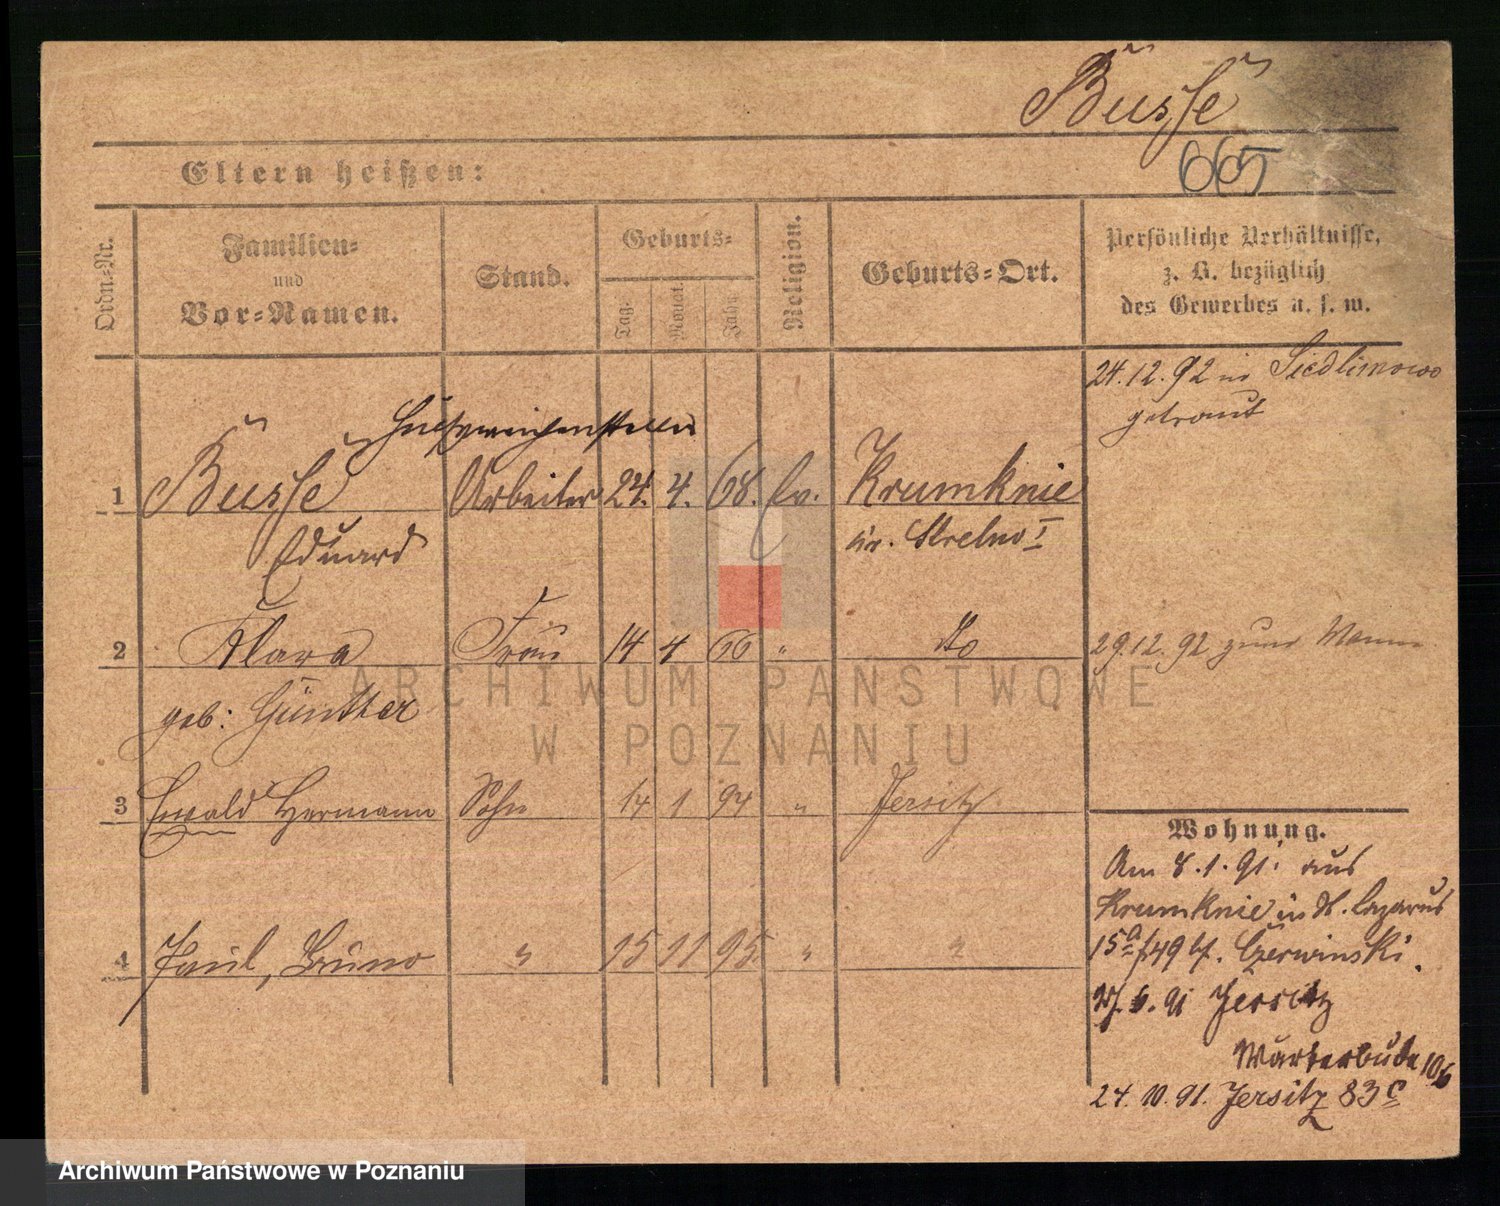 Busse
665
Eltern heißen:
Ordn.-Nr.
Familien-
und
Vor-Namen.
Stand.
Geburts-
Tag.
Monat.
Jahr.
Religion.
Geburts-Ort.
Persönliche Verhältnisse,
z. B. bezüglich
des Gewerbes u. s. w.
24.12.92 in Siedlimowo
getraut
Hülfsweichensteller
1 Busse Arbeiter 24. 4. 68. Ev. Krumknie
Eduard Kr. Strelno I
2 Klara Frau 14 4 66 " Do 29.12.92 zum Manne
geb: Günther
3 Ewald Hermann Sohn 14 1 94 " Jersitz
4 Paul, Bruno " 15 11 95. " "
Wohnung.
Am 8.1.91. aus
Krumknie in St. Lazarus
15a/49 bf. Czerwinski.
6. 91 Jersitz
Wärterbude 106
24. 10. 91. Jersitz 83c
ARCHIWUM PAŃSTWOWE
W POZNANIU
Archiwum Państwowe w Poznaniu